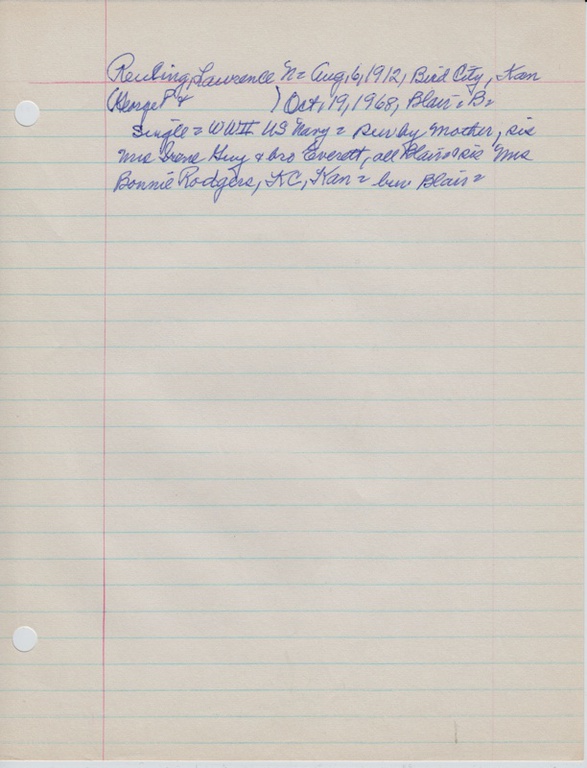 Reuling, Lawrence N = Aug, 6, 1912, Bird City, Kan
(George P &            ) Oct, 19, 1968, Blair = B =
Single = WW II US Navy = surv by Mother, sis
Mrs Irene Guy & bro Everett, all Blair & sis Mrs
Bonnie Rodgers, KC, Kan = bur Blair =